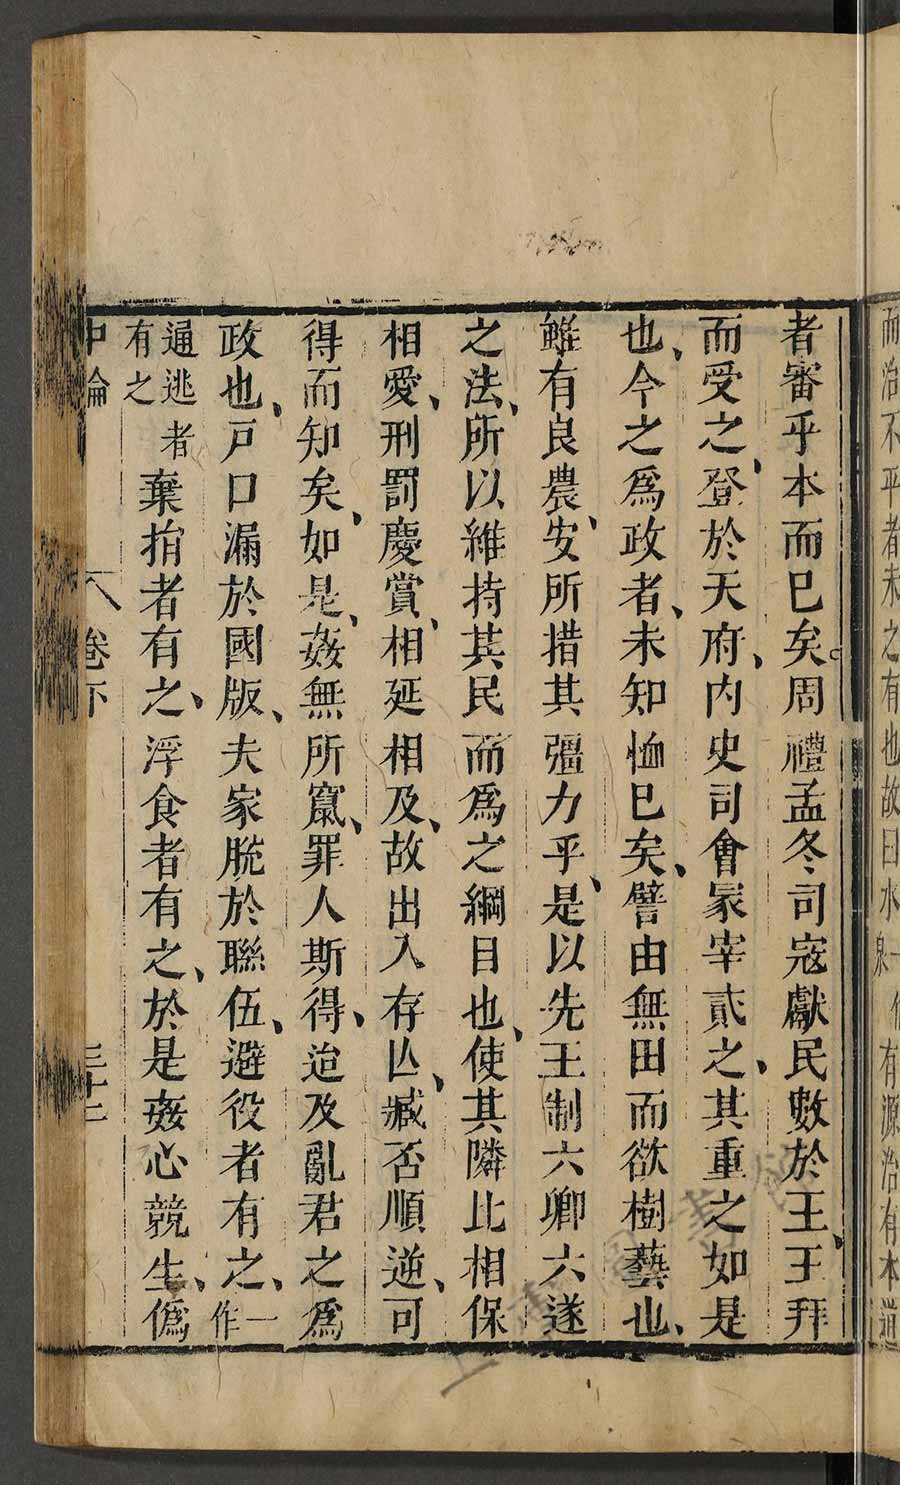 而治不平者未之有也故曰水泉有源治有本道
者審乎本而巳矣。周禮孟冬司寇獻民數於王、王拜
而受之、登於天府、內史司會冢宰貳之、其重之如是
也、今之爲政者、未知恤巳矣、譬由無田而欲樹藝也、
雖有良農、安所措其彊力乎、是以先王制六鄉六遂
之法、所以維持其民而爲之綱目也、使其隣比相保
相愛、刑罰慶賞、相延相及、故出入存亾、臧否順逆、可
得而知矣、如是、姦無所竄、罪人斯得、迨及亂君之爲
政也、戸口漏於國版、夫家脫於聯伍、避役者有之、一作
逋逃者有之棄捐者有之、浮食者有之、於是姦心競生、僞
中論 卷下 三十二